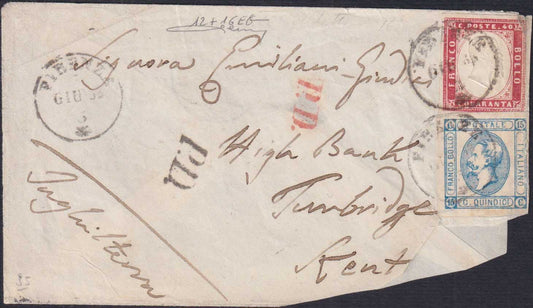 12 + 16EG
C. POSTE 40
FRANCO
BOLLO
QUARANTA
FIRENZE
GIU
Signora Emiliani-Giudici
P.D.
High Bank
Tunbridge
Kent
Inghilterra
15
POSTALE
15
FRANCO BOLLO
ITALIANO
15
C. QUINDICI
C.